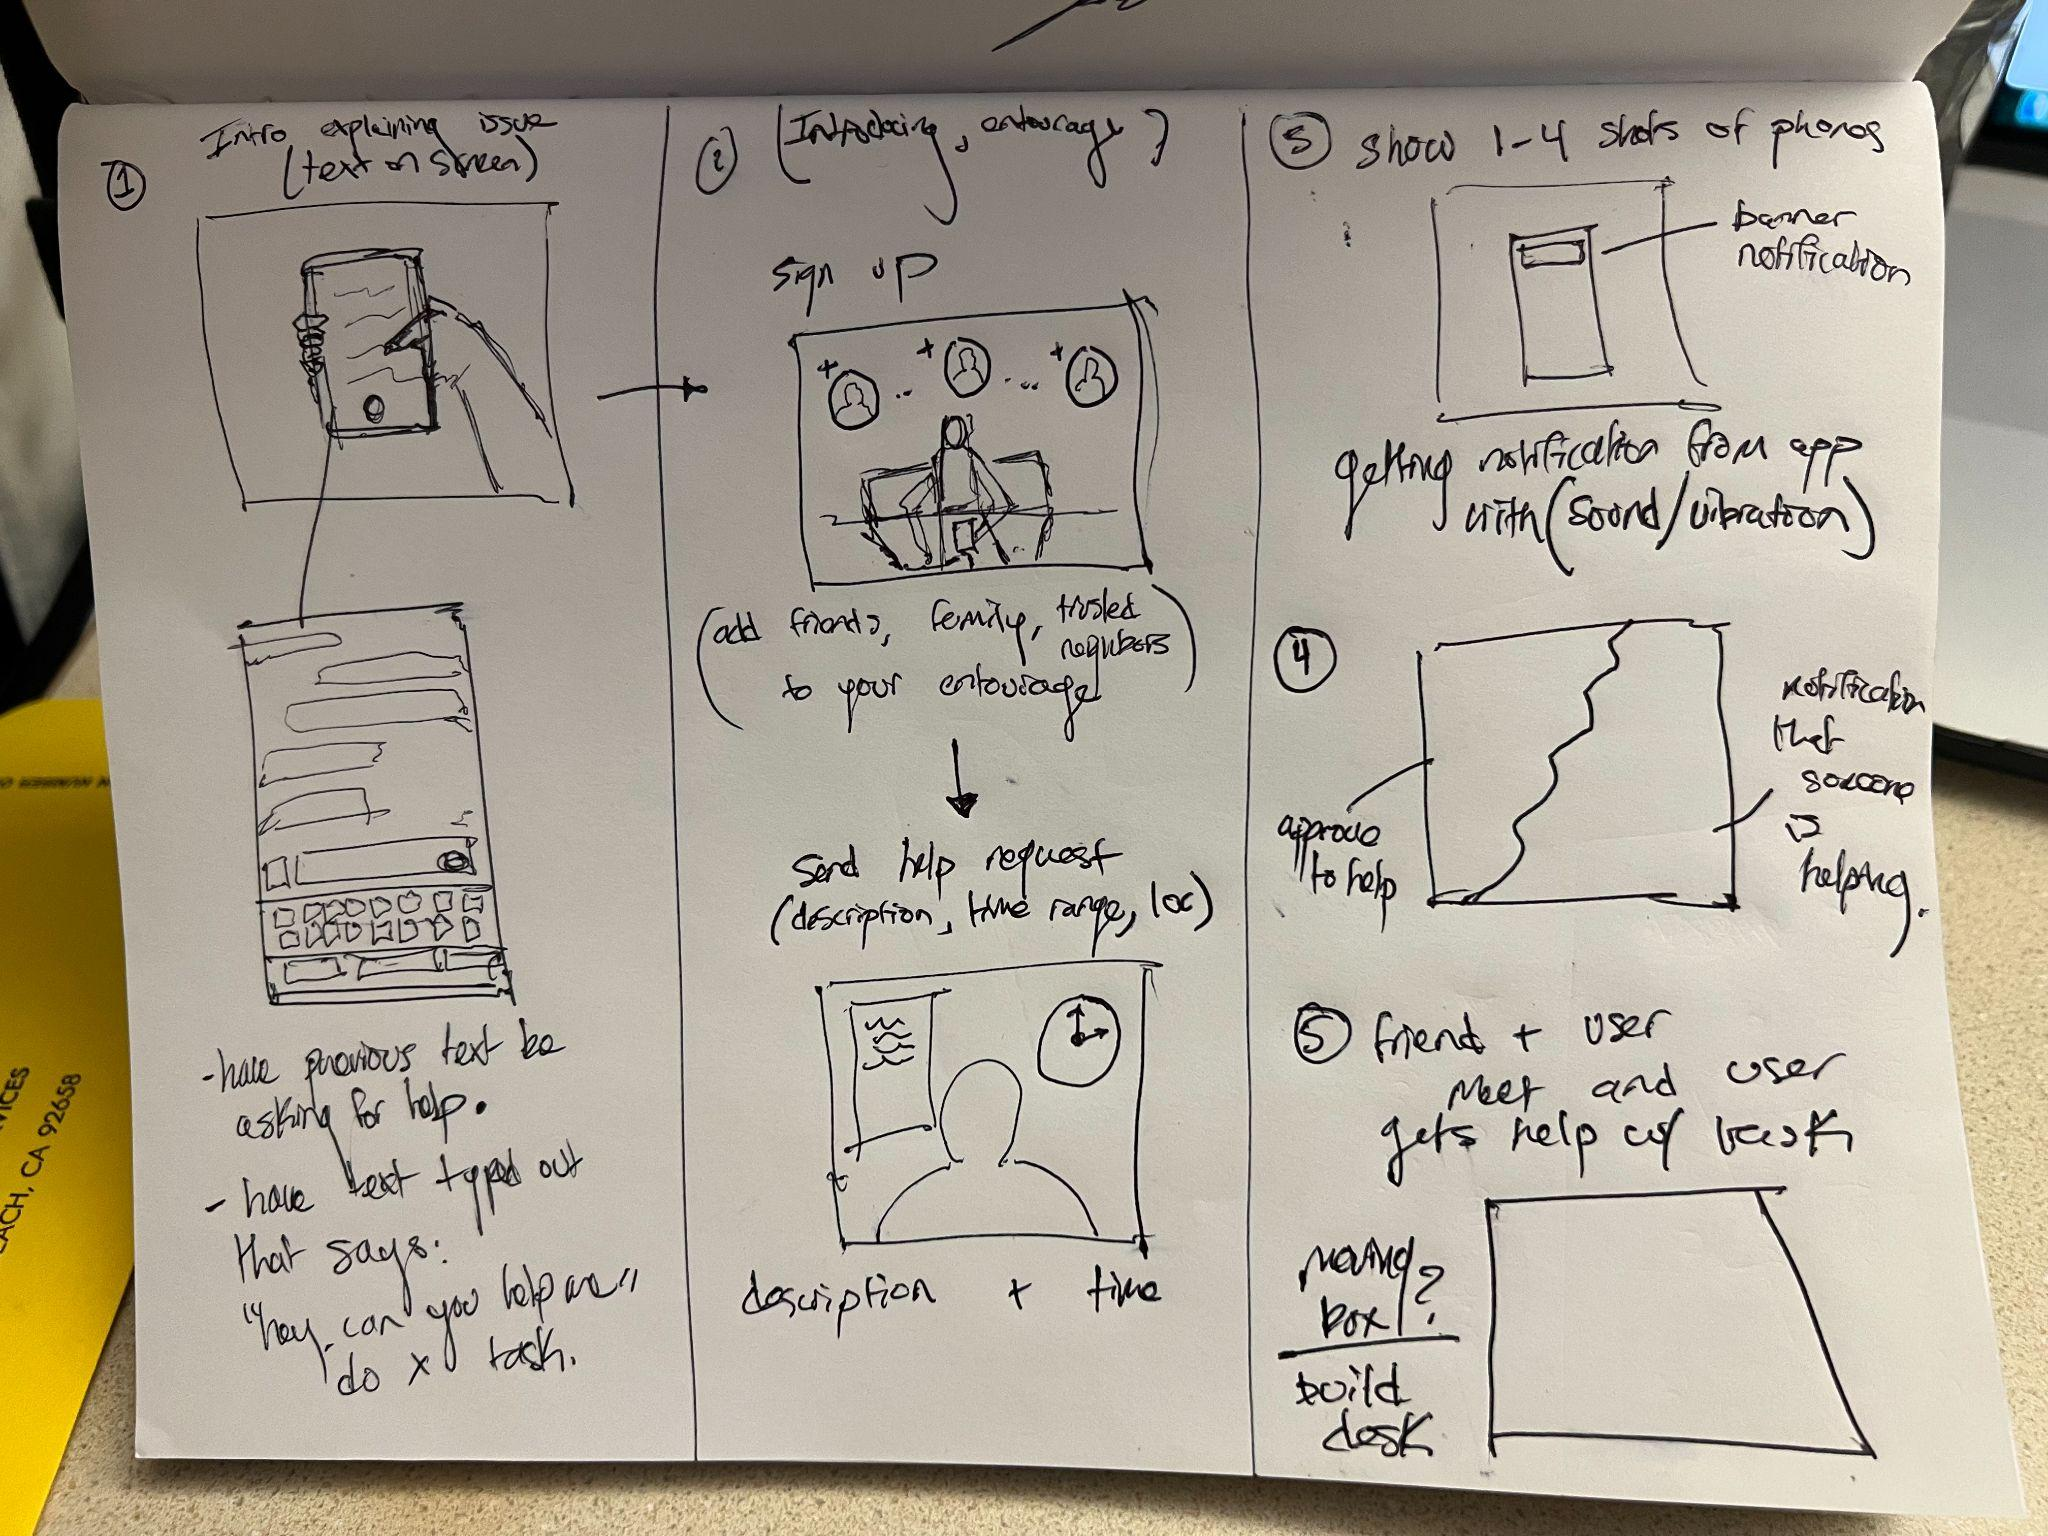 ①
Intro explaining issue
(text on screen)
- have previous text be
asking for help.
- have text typed out
that says:
"hey, can you help me"
do x task.
②
(Introducing, entourage)
sign up
+
+
+
(add friends, family, trusted
neighbors
to your entourage)
Send help request
(description, time range, loc)
description + time
③ show 1-4 shots of phones
banner
notification
getting notification from app
with (sound/vibration)
④
approve
to help
notification
that
someone
is
helping.
⑤ friend + user
meet and user
gets help w/ task
moving
box?
build
desk
VICES
EACH, CA 92658